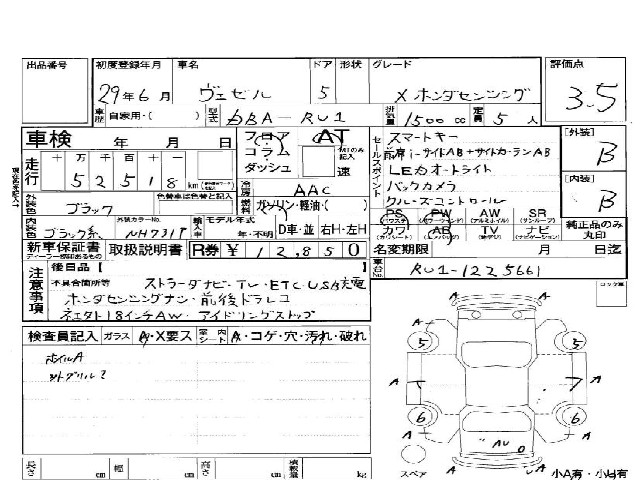 出品番号 初度登録年月 車名 ドア 形状 グレード 評価点
29年6月 ヴェゼル 5 X ホンダセンシング 3.5
車歴 自家用・( ) 型式 DBA-RU1 排気量 1500 cc 定員 5 人
車検 年 月 日
フロア コラム ダッシュ AT 速
走行 十 万 千 百 十
5 2 5 1 8 km
セールスポイント スマートキー
前席i-サイドAB+サイドカーテンAB
LEDオートライト
バックカメラ
クルーズコントロール
[外装] B
[内装] B
冷房 AAC
外装色 ブラック 色替車は色替と記入
燃料 ガソリン・軽油・( )
内装色 ブラック系 外装カラーNo. NH731P 輸入車 モデル年式 年・不明 D車・並 右H・左H
PS PW AW SR
カワ AB TV ナビ 純正品のみ丸印
新車保証書 取扱説明書 R券 ¥ 12,850
ディーラー捺印あるもの
名変期限 月 日迄
車台No. RU1-1225661
注意事項 後日品 [
不具合箇所等 ストラーダナビ・TV・ETC・USB充電
ホンダセンシング・前後ドラレコ
18インチAW・アイドリングストップ
検査員記入 ガラス A・X要ス 室内 シート A・コゲ・穴・汚れ・破れ
ホイルA
A
A 5 5 A
A 7 7 A
6 6
A AU A
スペア A 小A有・小U有
長さ cm 幅 cm 高さ cm 積載量 kg